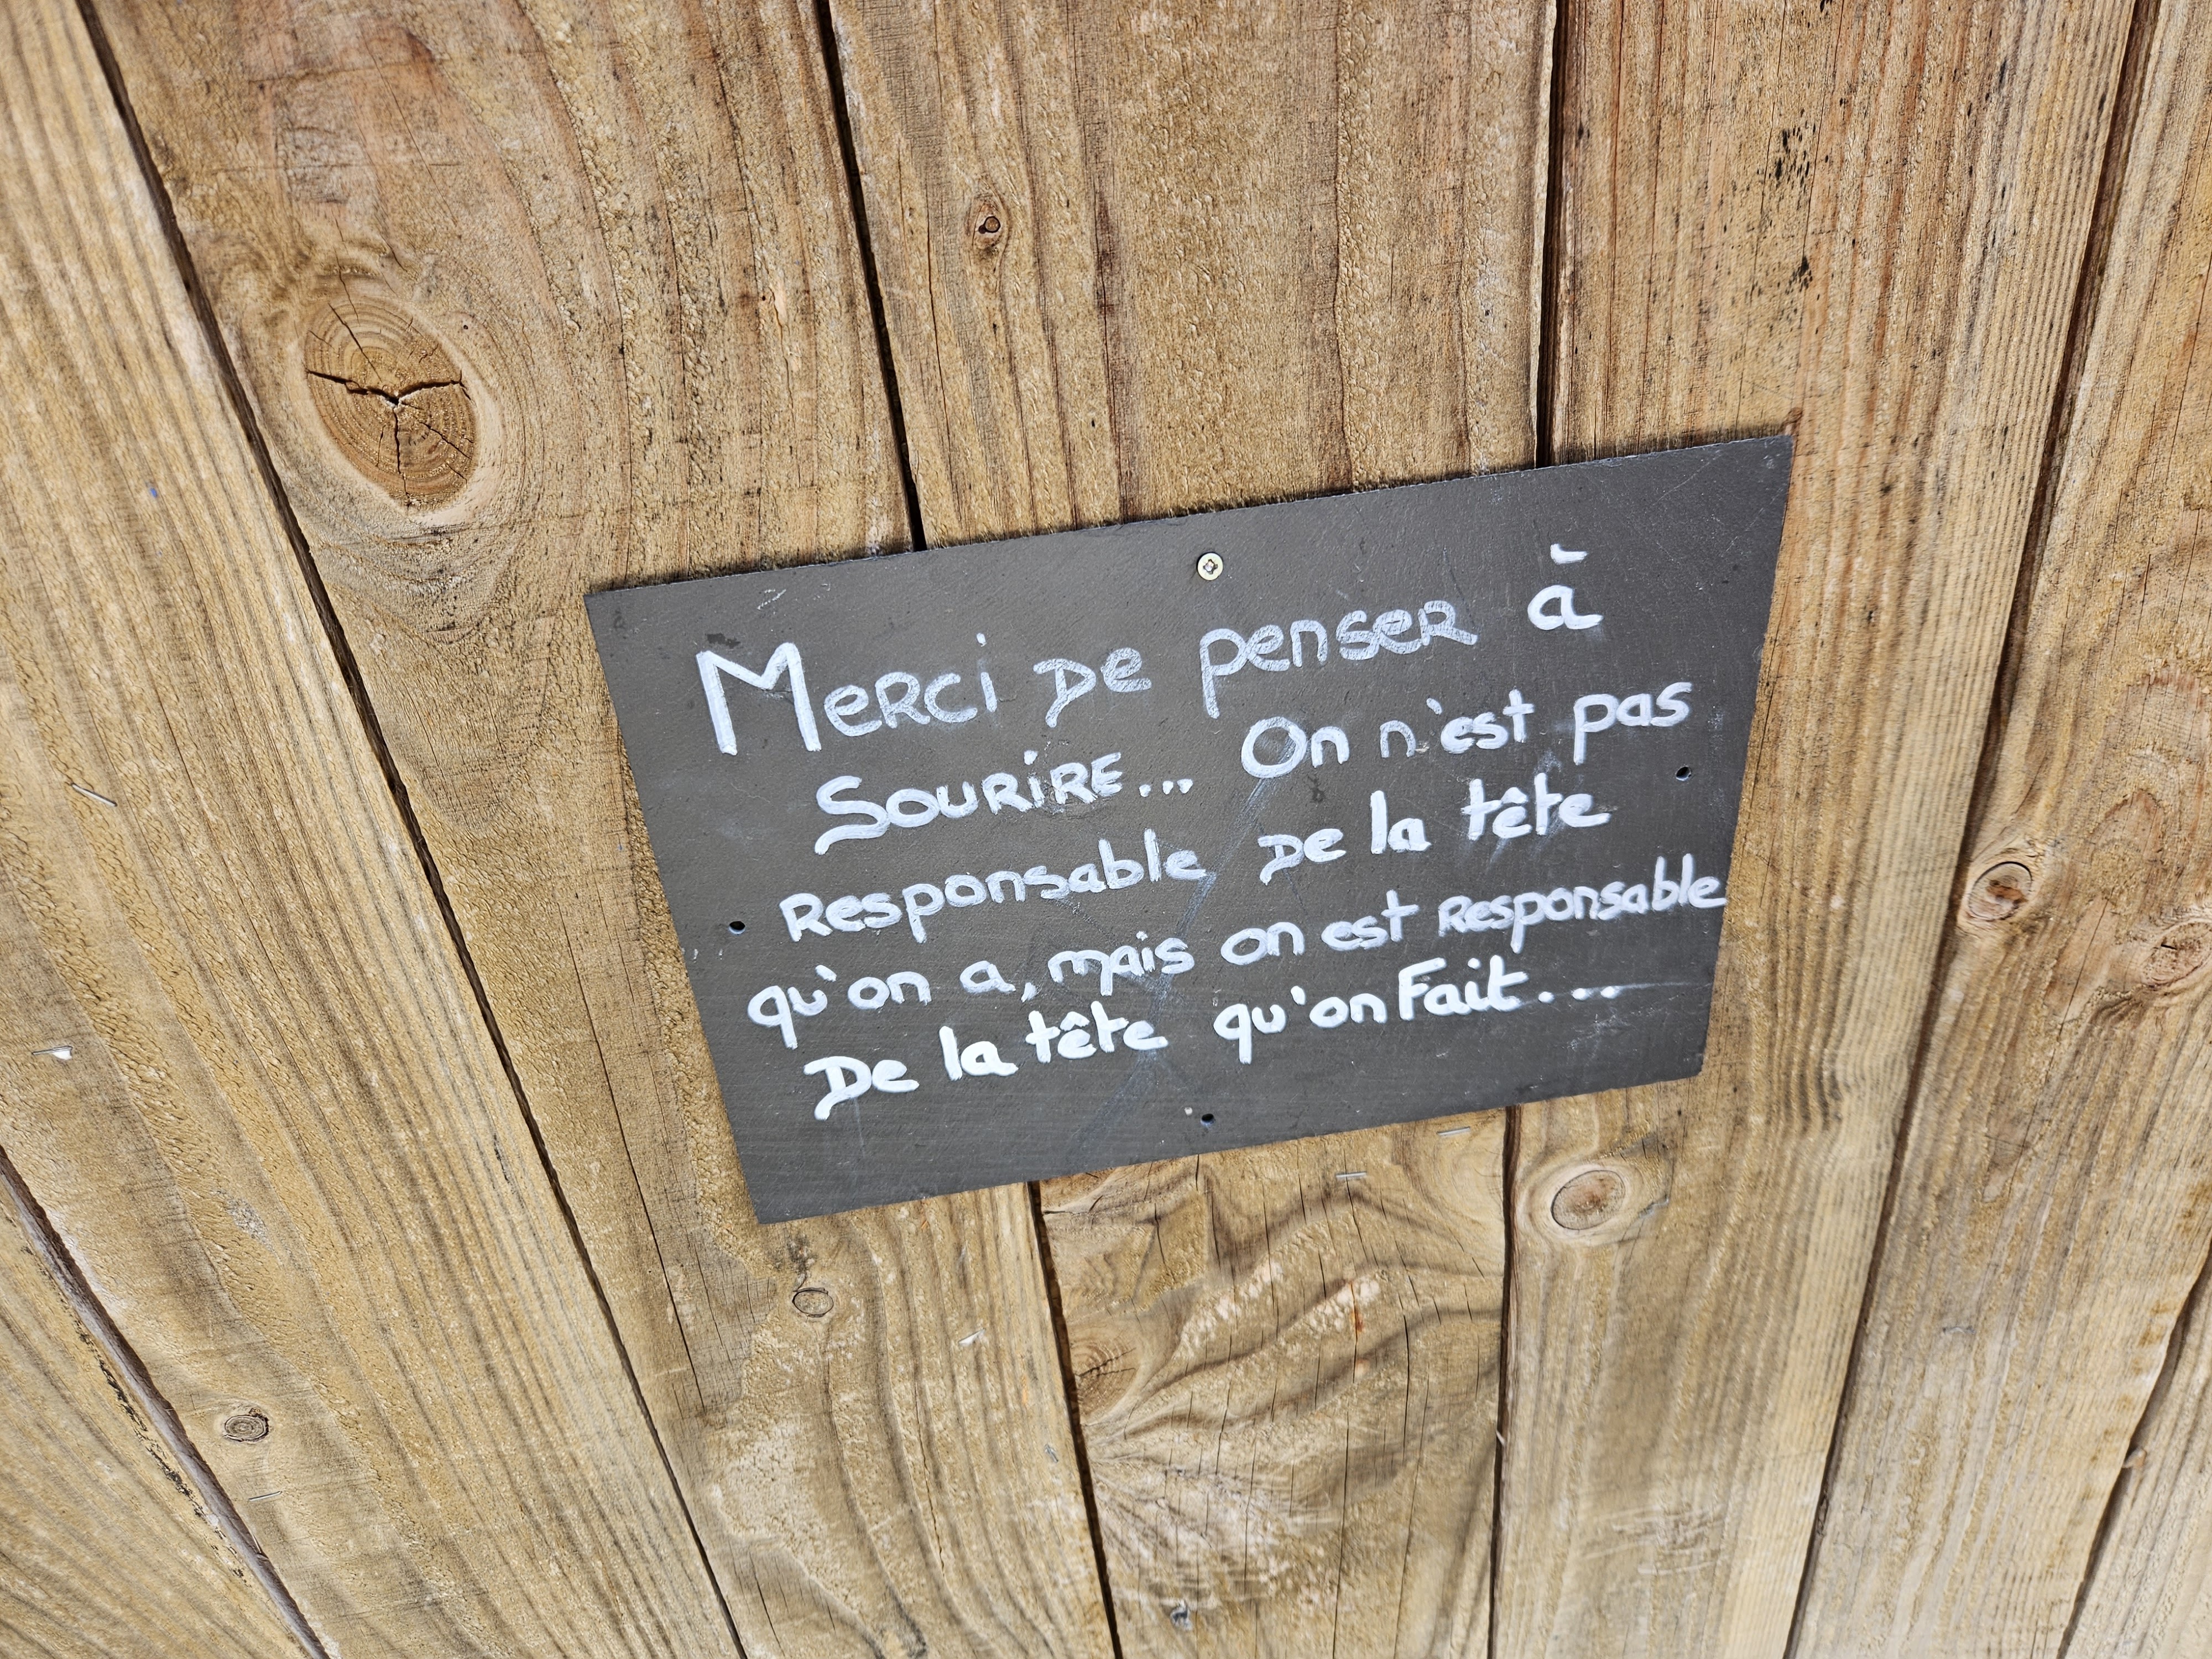 Merci de penser à
Sourire... On n'est pas
Responsable de la tête
qu'on a, mais on est Responsable
De la tête qu'on Fait...